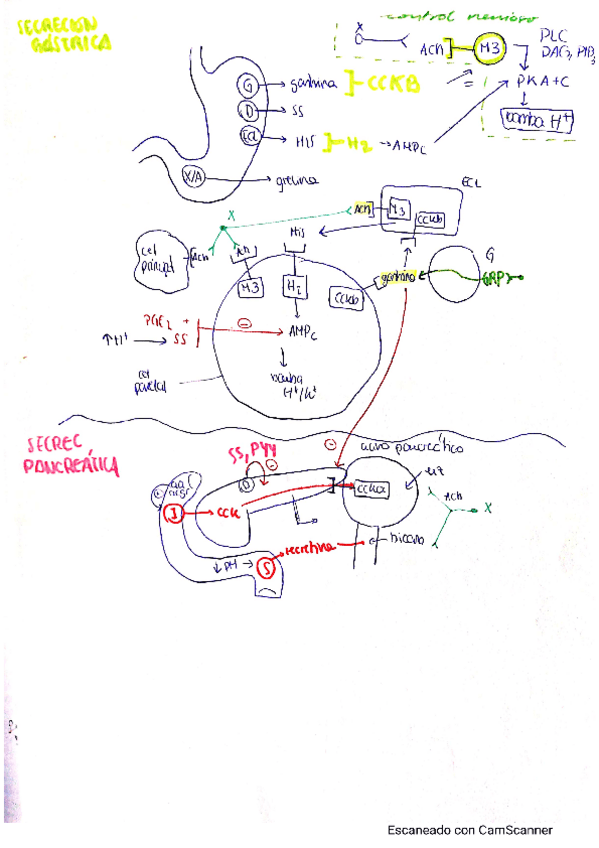 SECRECIÓN
GÁSTRICA
control nervioso
X
ACh
M3
PLC
DAG, PIP3
PKA+C
bomba H+
G
gastrina
CCKB
D
SS
ECL
HIS
H2
AMPc
X/A
grelina
ECL
ACh
M3
CCKb
X
His
cel
principal
ACh
Ach
M3
H2
CCKb
gastrina
G
GRP
PGE2 +
SS
↑H+
⊖
AMPc
bomba
H+/K+
cel
parietal
SECREC
PANCREÁTICA
⊖
acino pancreático
SS, PYY
⊖
D
I
CCK
CCKa
ACh
X
↓pH
S
secretina
bicarb
Escaneado con CamScanner